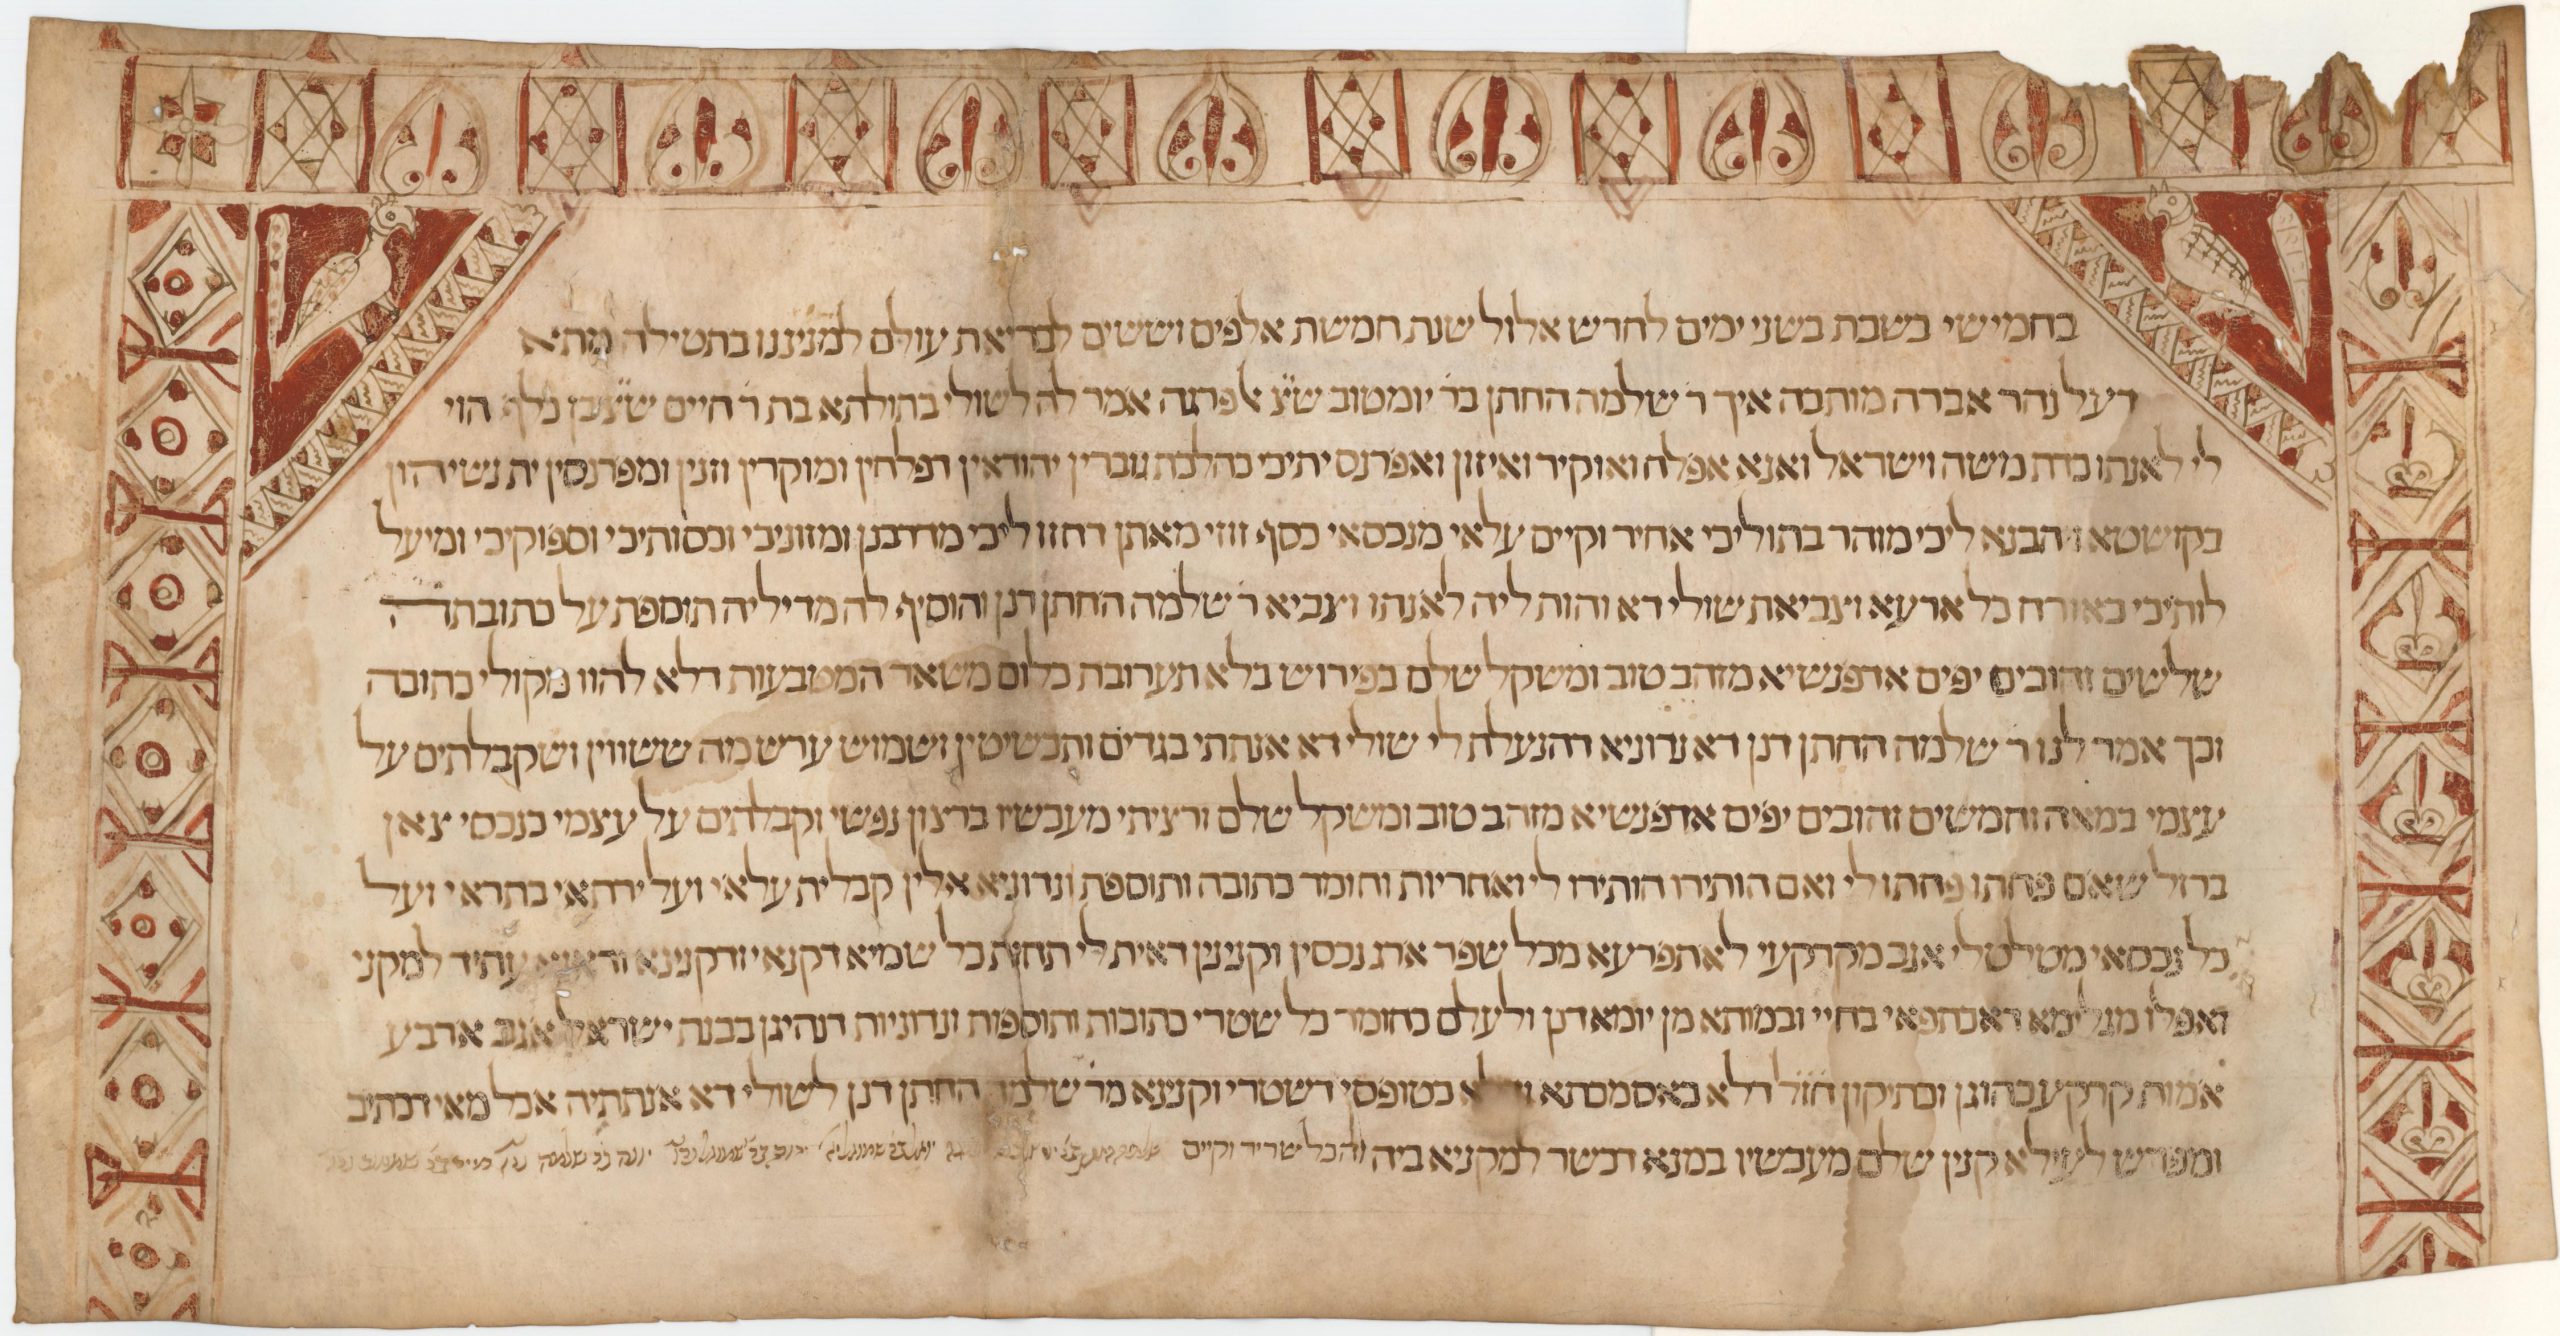 בחמישי בשבת בשני ימים לחדש אלול שנת חמשת אלפים וששים לבריאת עולם למניננו בתטילה מתא
דעל נהר אברה מותבה איך ר שלמה החתן בר יומטוב ש״צ אמר לה לשולי בתולתא בת ר חיים הוי
לי לאנתו כדת משה וישראל ואנא אפלח ואוקיר ואיזון ואפרנס יתיכי כהלכת גוברין יהודאין דפלחין ומוקרין וזנין ומפרנסין ית נשיהון
בקושטא ויהבנא ליכי מוהר בתוליכי אחיד וקיים עלאי מנכסאי כסף זוזי מאתן דחזו ליכי מדרבנן ומזוניכי וכסותיכי וספוקיכי ומיעל
לותיכי כאורח כל ארעא וצביאת שולי דא והות ליה לאנתו וצביא ר שלמה החתן דנן והוסיף לה מדיליה תוספת על כתובתה
שלשים זהובים יפים אדפנשיא מזהב טוב ומשקל שלם בפירוש בלא תערובת כלום משאר המטבעות דלא להוו מקולי כתובה
וכך אמר לנו ר שלמה החתן דנן דא נדוניא דהנעלת לי שולי דא אנתתי בגדים ותכשיטין ושמוש ערש מה ששווין ושקבלתים על
עצמי במאה וחמשים זהובים יפים אדפנשיא מזהב טוב ומשקל שלם ורציתי מעכשיו ברצון נפשי וקבלתים על עצמי כנכסי צאן
ברזל שאם פחתו פחתו לי ואם הותירו הותירו לי ואחריות וחומר כתובה ותוספת ונדוניא אלין קבלית עלאי ועל ירתאי בתראי ועל
כל נכסאי מטלטלי אגב מקרקעי לאתפרעא מכל שפר ארג נכסין וקנינין דאית לי תחות כל שמיא דקנאי ודקנינא ודאנא עתיד למקני
ואפלו מגלימא דאכתפאי בחיי ובמותא מן יומא דנן ולעלם כחומר כל שטרי כתובות ותוספות ונדוניות דנהיגן בבנת ישראל אגב ארבע
אמות קרקע כהוגן וכתיקון חז״ל דלא כאסמכתא ודלא כטופסי דשטרי וקנינא מר שלמה החתן דנן לשולי דא אנתתיה אכל מאי דכתיב
ומפרש לעילא קנין שלם מעכשיו במנא דכשר למקניא ביה והכל שריר וקיים